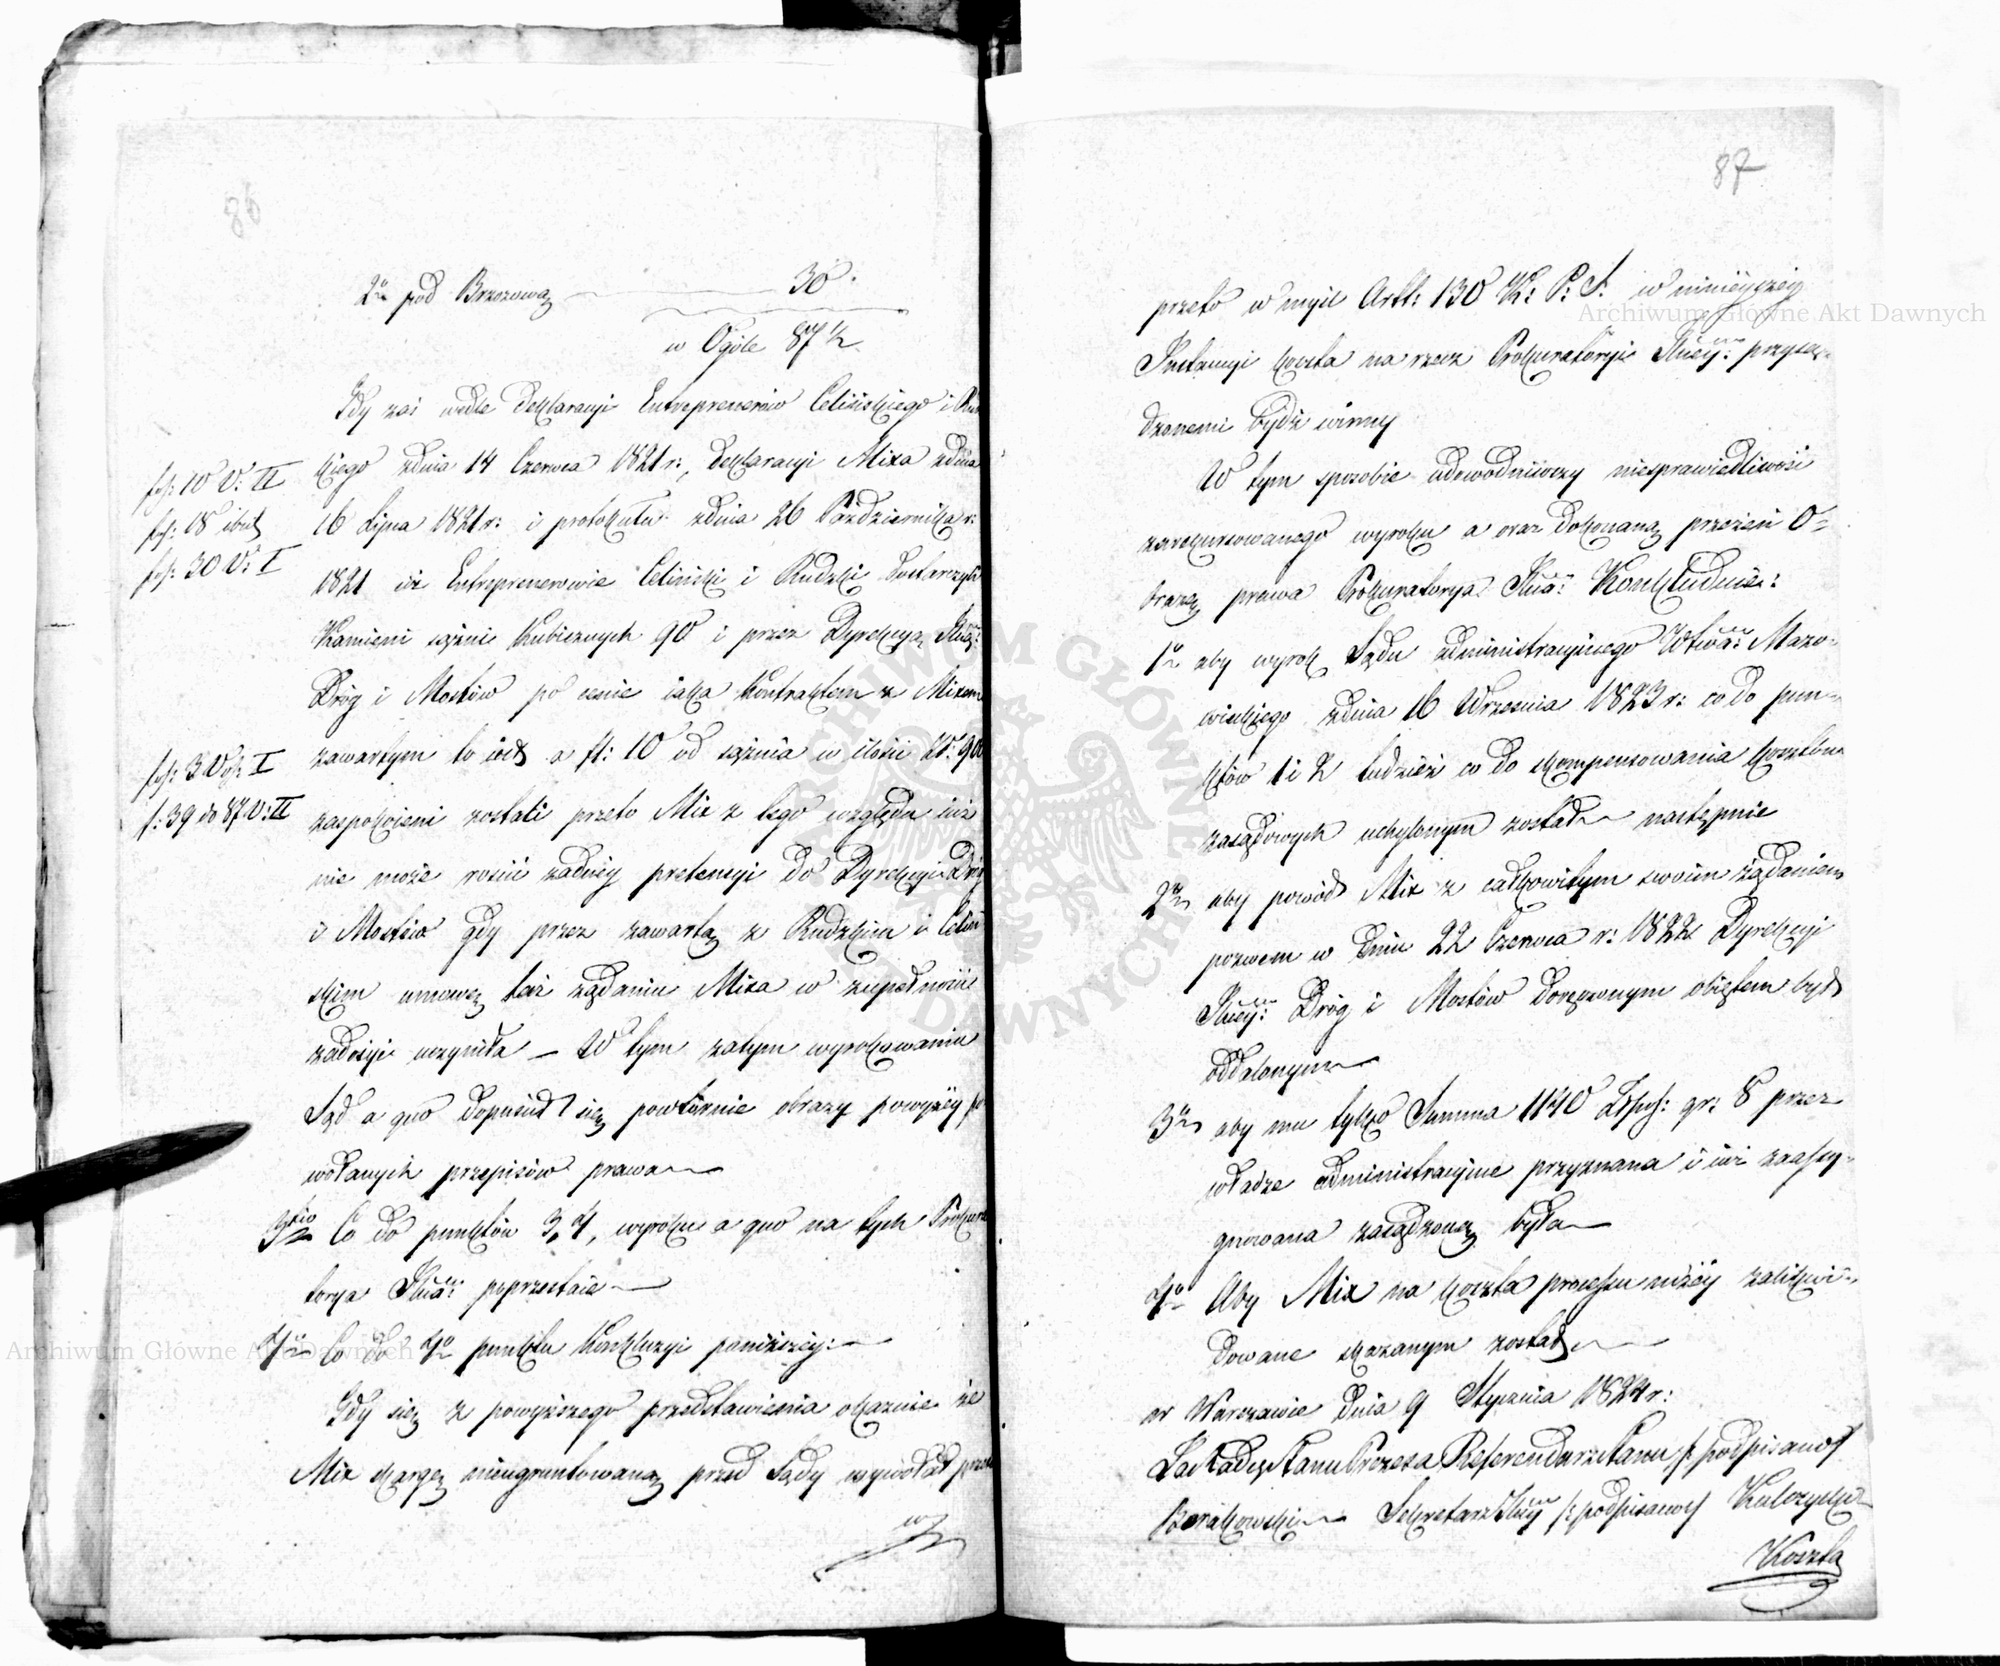 86
2o pod Brzozową 30.
w Ogóle 87 1/2
Gdy zaś wedle deklaracyi Entreprenerów Celińskiego i Rudz
kiego z dnia 14 Czerwca 1821 r:, deklaracyi Mixa z dnia
fol: 10 V: II
16 Lipca 1821 r: i protokułu z dnia 26 Października r:
fol: 18 ibid
1821 iż Entreprenerowie Celiński i Rudzki dostarczyli
fol: 30 V: I
Kamieni sążni kubicznych 90 i przez Dyrekcyą Jlną:
Dróg i Mostów po cenie iaka kontraktem z Mixem
zawartym to iest a fl: 10 od sążnia w ilości Zł: 900
fol: 3 Vol: I
zaspokoieni zostali przeto Mix z tego względu iuż
f: 39 do 87 V: II
nie może rościć żadney pretensyi do Dyrekcyi Dróg
i Mostów gdy przez zawartą z Rudzkim i Celiń
skim umowę też żądaniu Mixa w zupełności
zadosyć uczyniła – W tym zatym wyrokowaniu
Sąd a quo dopuścił się powtórnie obrazy powyżey po
wołanych przepisów prawa
3tio Co do punktów 3, 4, wyroku a quo na tych Prokura
torya Jlna: poprzestaie
4o Co do 4o punktu konkluzyi poniższey:
Gdy się z powyższego przedstawienia okazuie że
Mix skargę nieugruntowaną przed Sądy wywołał
87
przeto w myśl Artt: 130 K: P: S: w ninieyszey
Instancyi koszta na rzecz Prokuratoryi Jlney: przysą=
dzonemi bydź winny
W tym sposobie udowodniwszy niesprawiedliwość
zarekursowanego wyroku a oraz dokonaną przezeń O=
brazę prawa Prokuratorya Jlna: Konkluduie:
1o aby wyrok Sądu administracyinego Wtwa: Mazo=
wieckiego z dnia 16 Września 1823 r: co do pun=
któw 1 i 2 tudzież co do skompensowania kosztów
zasądowych uchylonym został następnie
2o aby powód Mix z całkowitym swoim żądaniem
pozwem w dniu 22 Czerwca r: 1822 Dyrekcyi
Jlney: Dróg i Mostów doręczonym obiętem był
oddalonym
3o aby mu tylko Summa 1140 Złpol: gr: 8 przez
władze administracyine przyznana i iuż zaasy=
gnowana zasądzoną była
4o Aby Mix na koszta processu niżey zalikwi=
dowane skazanym został
w Warszawie dnia 9 Stycznia 1824 r:
Za Radcę Stanu Prezesa Referendarz Stanu /: podpisano :/
Sekretarz Jlny /: podpisano :/ Kulczycki
Koszta
Archiwum Główne Akt Dawnych
Archiwum Główne Akt Dawnych
ARCHIWUM GŁÓWNE AKT DAWNYCH